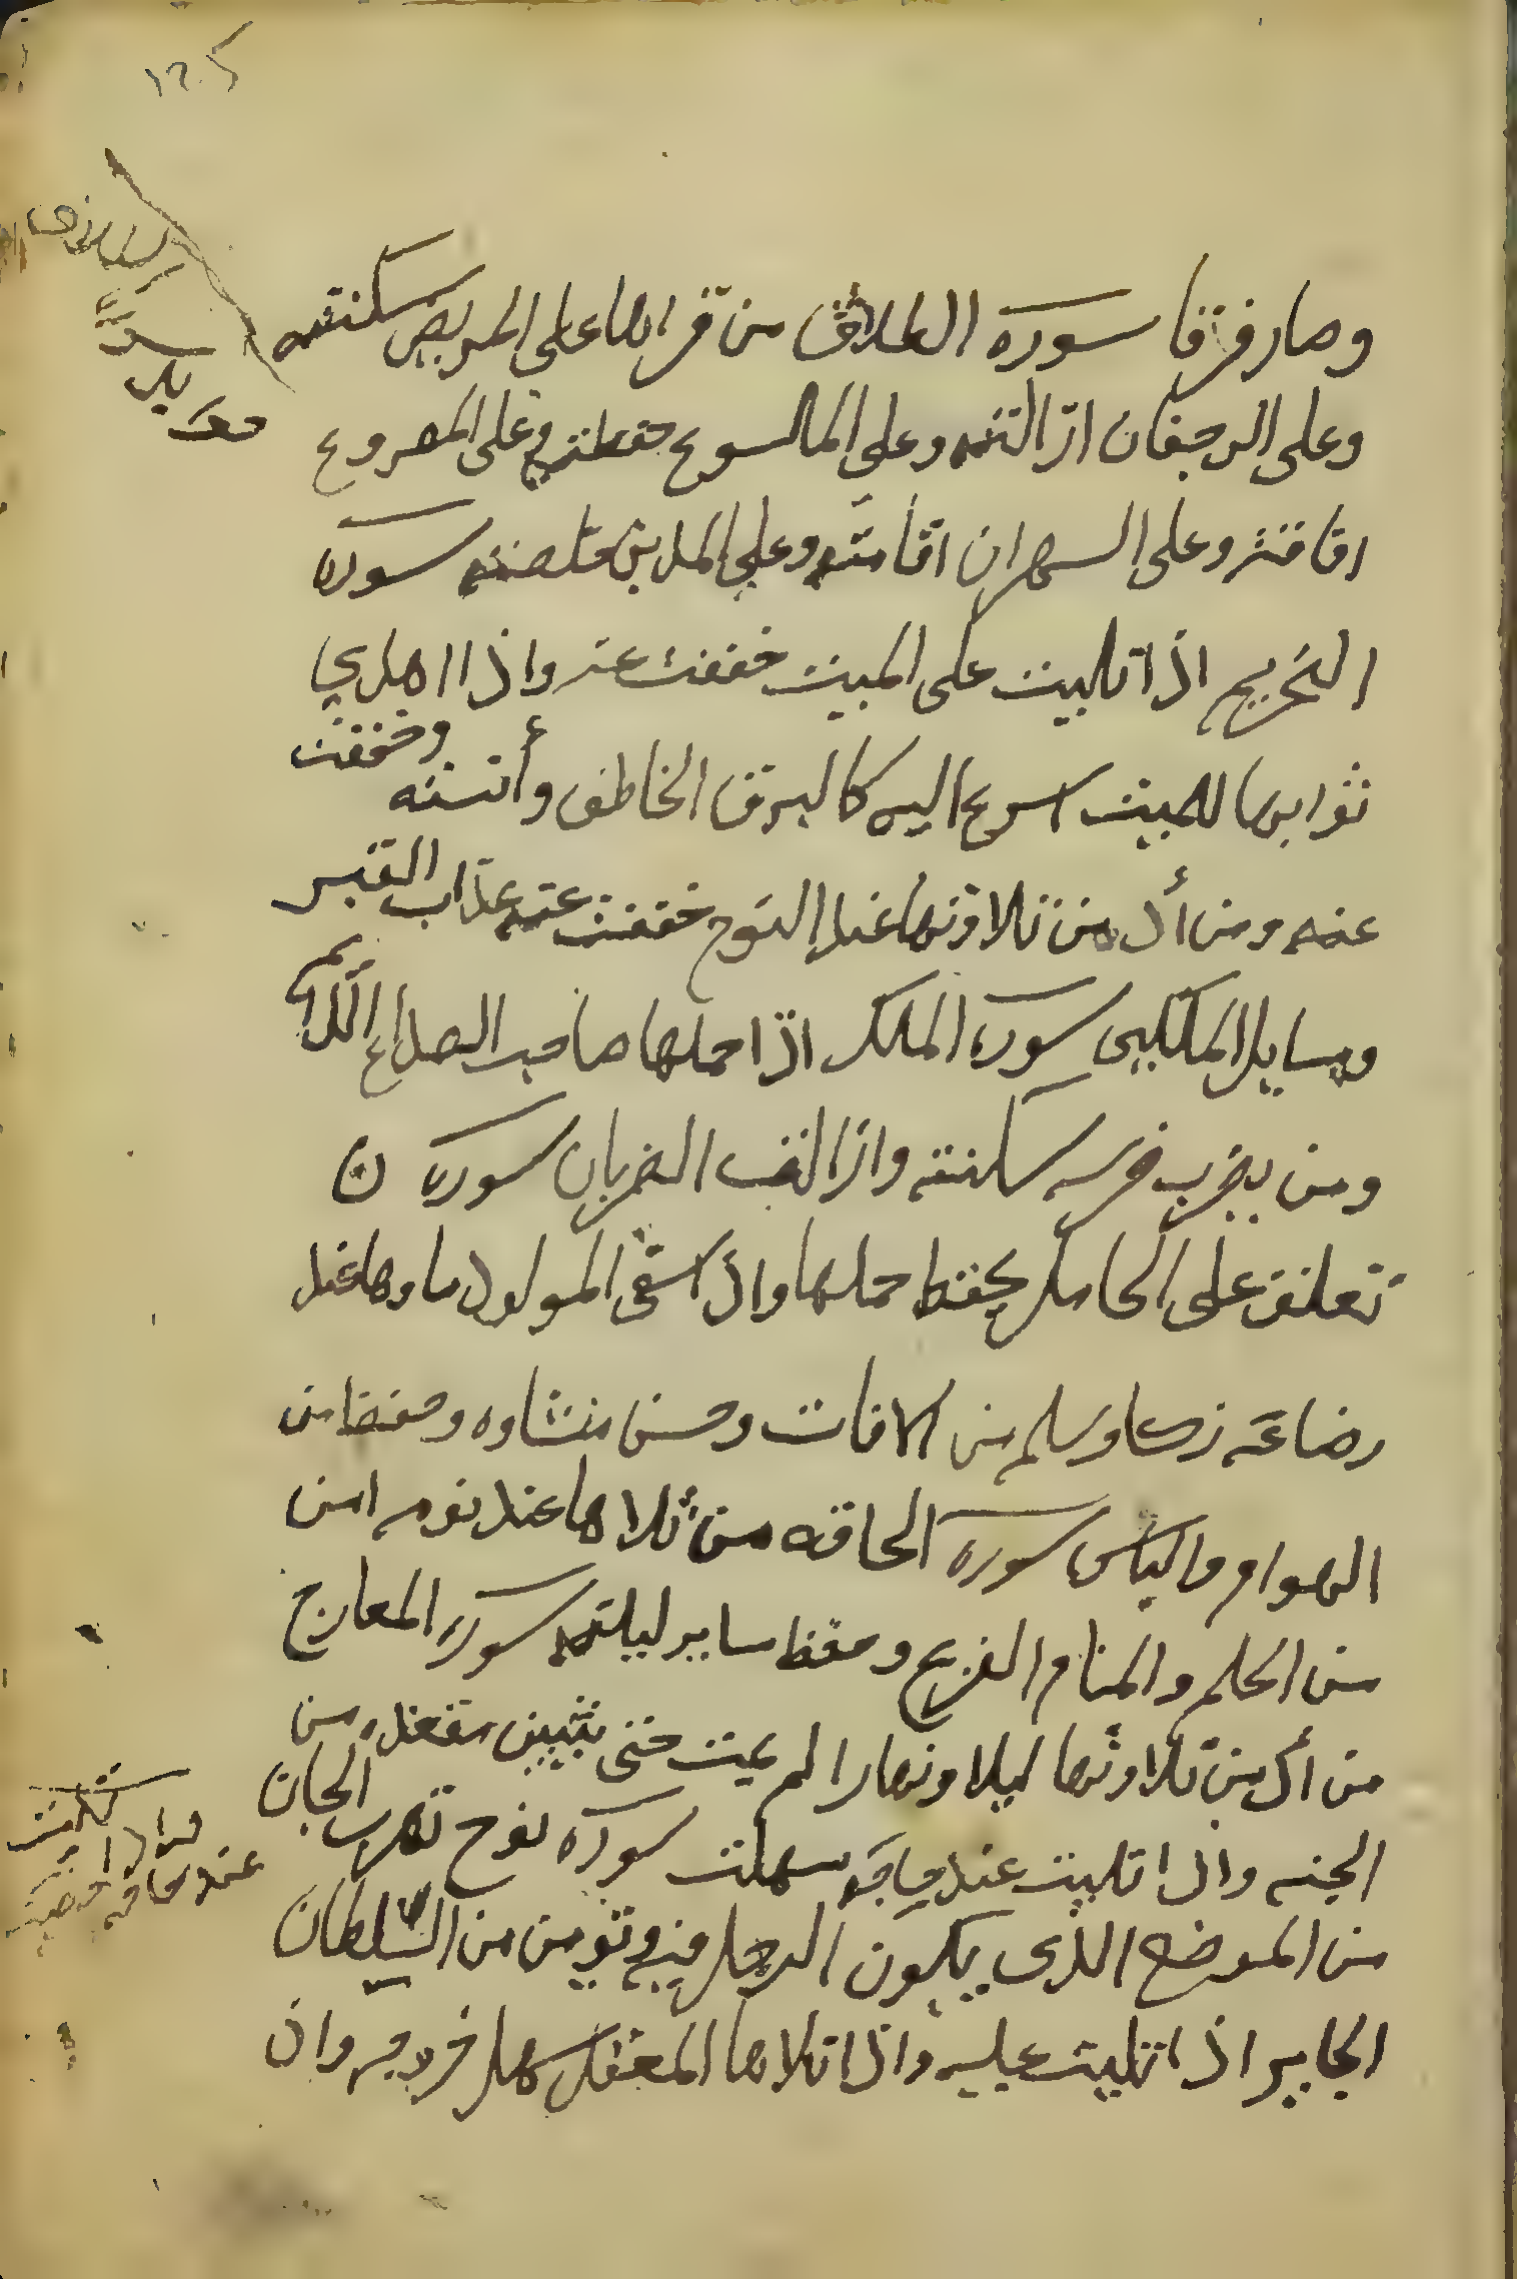 وصار فرقا سورة الطلاق من قراها على المريض سكنته
وعلى الرجفان ازالته وعلى الملسوع حفظته وعلى المصروع
افاقته وعلى السهران اقامته وعلى المدين خلصته سورة
التحريم اذا تليت على الميت خففت عنه واذا اهدي
ثوابها للميت اسرع اليه كالبرق الخاطف وأنسته وخففت
عنه ومن أدمن تلاوتها عند النوح خففت عنه عذاب القبر
سورة الملك اذا حملها صاحب الصداع الدايم
ومن يضرب ضرسه سكنته وازالت الضربان سورة ن
تعلق على الحامل يحفظ حملها واذا سقى المولود ماوها عند
رضاعه زكا وسلم من الافات وحسن منشاوه وحفظ من
الهوام سورة الحاقه من تلاها عند نومه امن
من الحلم والمنام الفزع وحفظ ساير ليلته سورة المعارج
من أدمن تلاوتها ليلا ونهارا لم يمت حتى يتبين مقعده من
الجنه واذا تليت عند حاجه سهلت سورة نوح تهرب الجان
من الموضع الذى يكون الرجل فيه وتؤمن من السلطان
الجاير اذا تليت عليه واذا تلاها المعتقل سهل خروجه وان